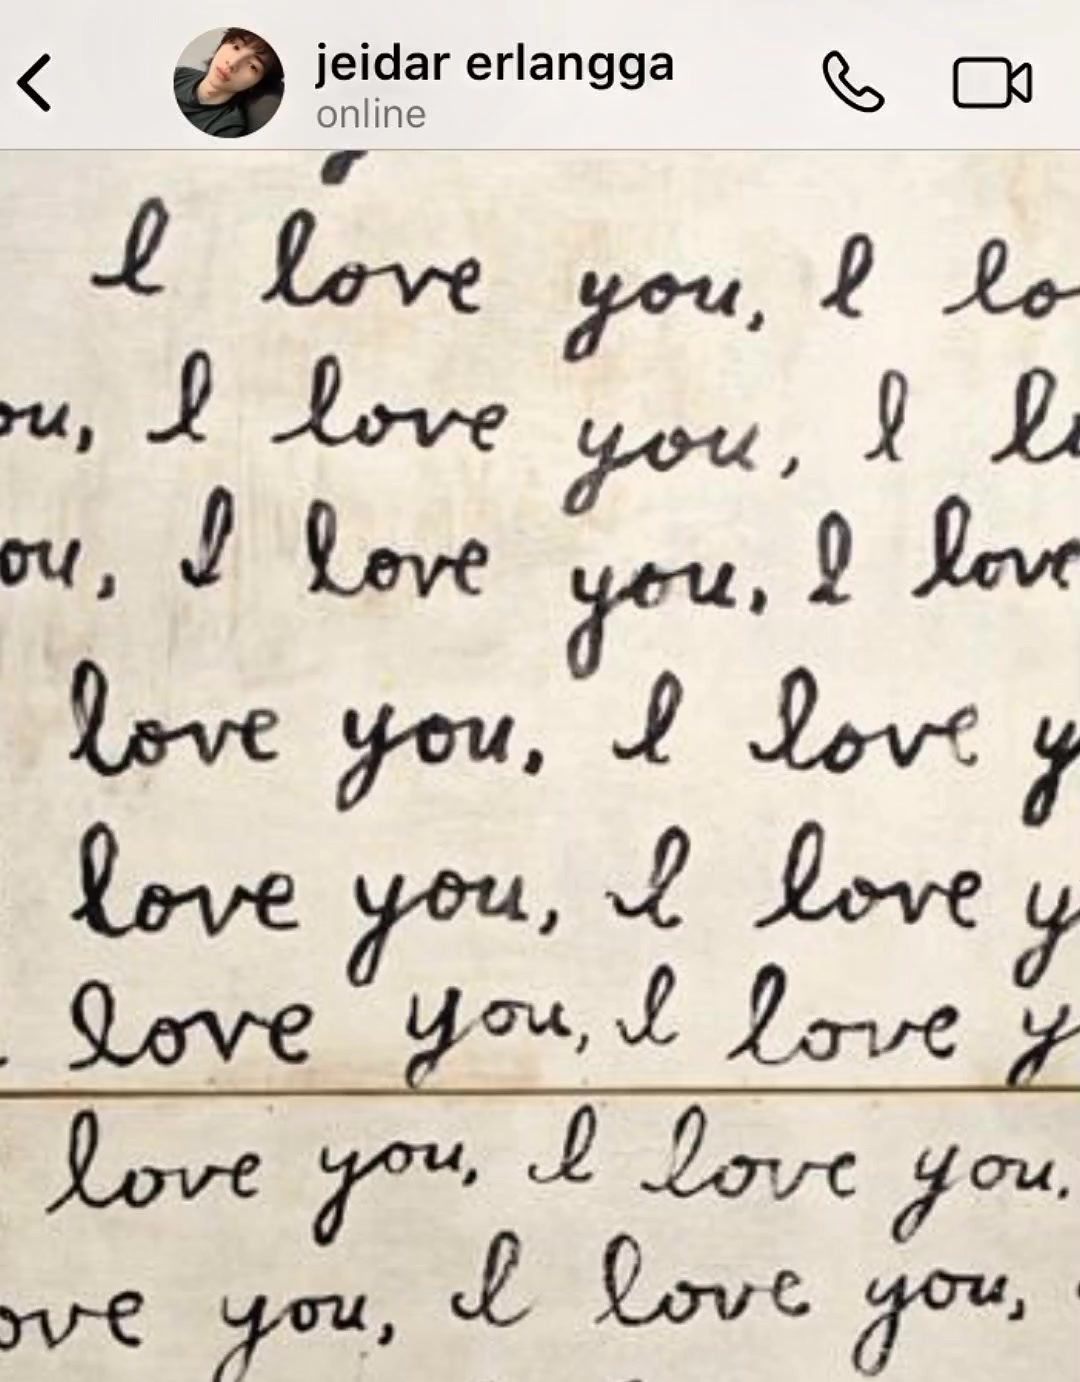 jeidar erlangga
online
I love you, I lo
ou, I love you, I lo
ou, I love you, I love
love you, I love y
love you, I love y
love you, I love y
love you, I love you,
ove you, I love you,